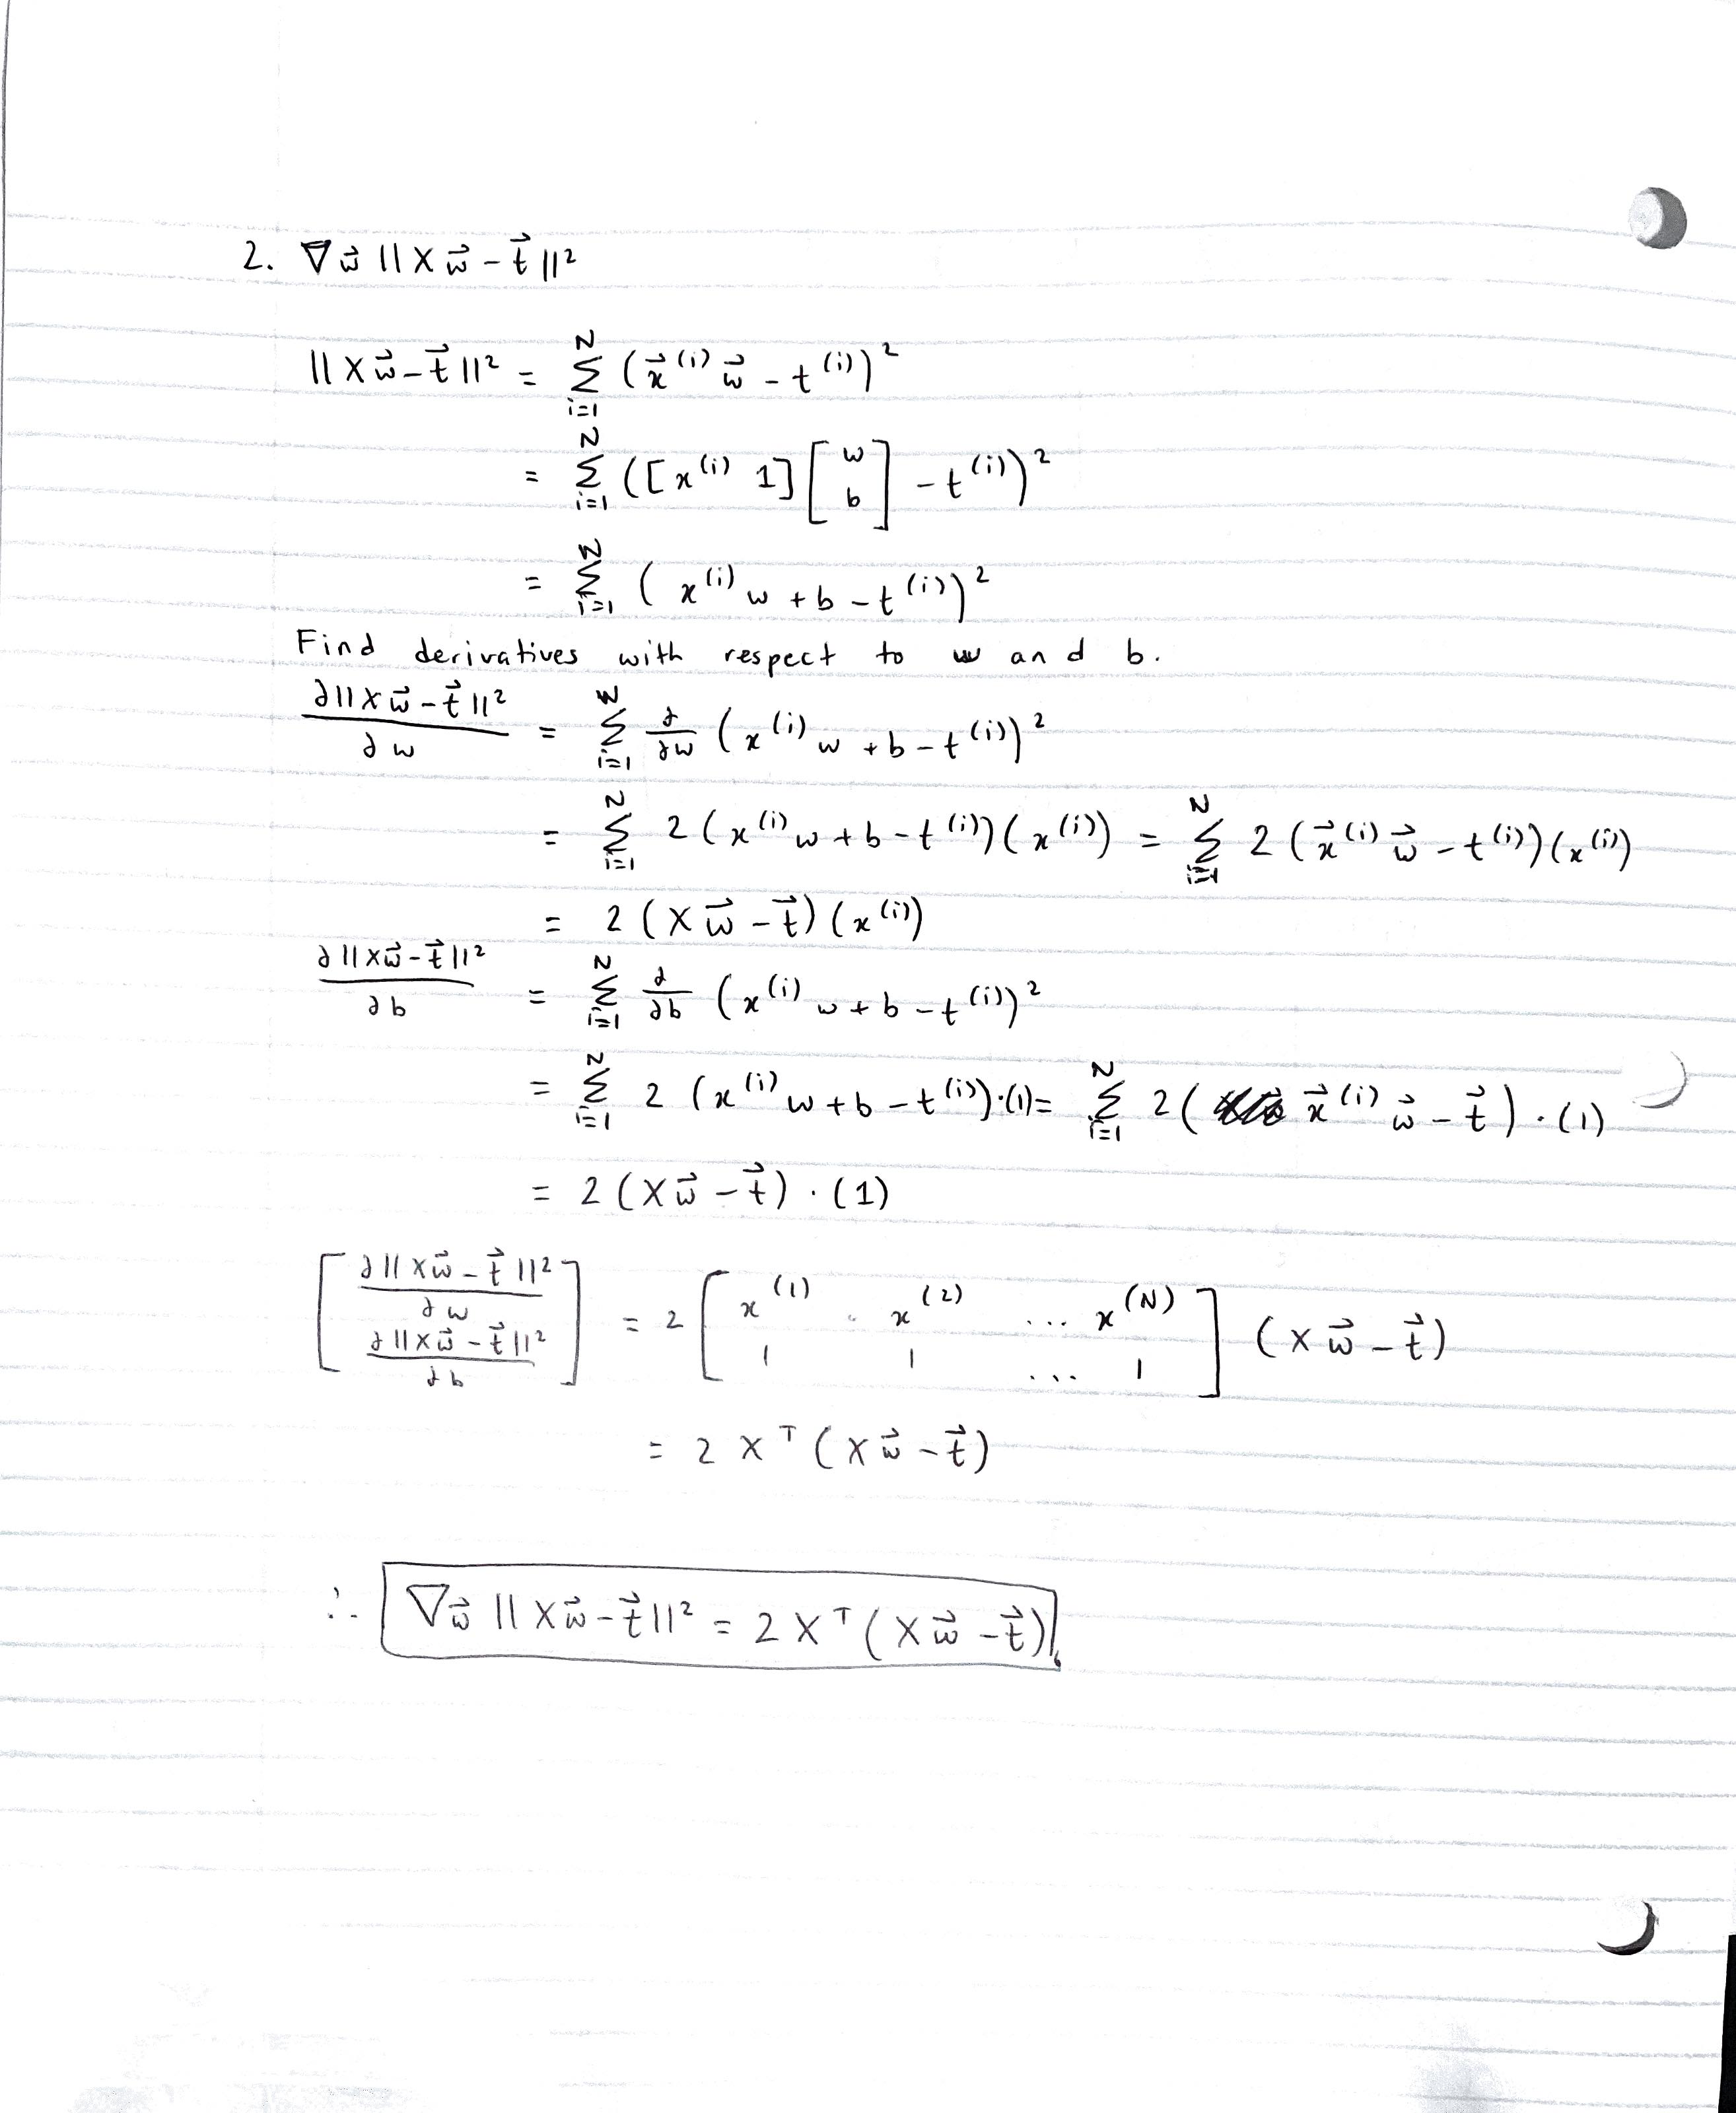 2. ∇w⃗ ||Xw⃗ - t⃗||²
||Xw⃗ - t⃗||² = Σ_{i=1}^{N} (x⃗^(i) w⃗ - t^(i))²
= Σ_{i=1}^{N} ([x^(i) 1] [w b] - t^(i))²
= Σ_{i=1}^{N} (x^(i) w + b - t^(i))²
Find derivatives with respect to w and b.
∂||Xw⃗ - t⃗||² / ∂w = Σ_{i=1}^{N} ∂/∂w (x^(i) w + b - t^(i))²
= Σ_{i=1}^{N} 2(x^(i) w + b - t^(i))(x^(i)) = Σ_{i=1}^{N} 2(x⃗^(i) w⃗ - t^(i))(x^(i))
= 2(Xw⃗ - t⃗)(x^(i))
∂||Xw⃗ - t⃗||² / ∂b = Σ_{i=1}^{N} ∂/∂b (x^(i) w + b - t^(i))²
= Σ_{i=1}^{N} 2(x^(i) w + b - t^(i))·(1) = Σ_{i=1}^{N} 2(x⃗^(i) w⃗ - t⃗)·(1)
= 2(Xw⃗ - t⃗)·(1)
[∂||Xw⃗ - t⃗||² / ∂w ; ∂||Xw⃗ - t⃗||² / ∂b] = 2 [x^(1) x^(2) ... x^(N) ; 1 1 ... 1] (Xw⃗ - t⃗)
= 2X^T(Xw⃗ - t⃗)
∴ ∇w⃗ ||Xw⃗ - t⃗||² = 2X^T(Xw⃗ - t⃗)